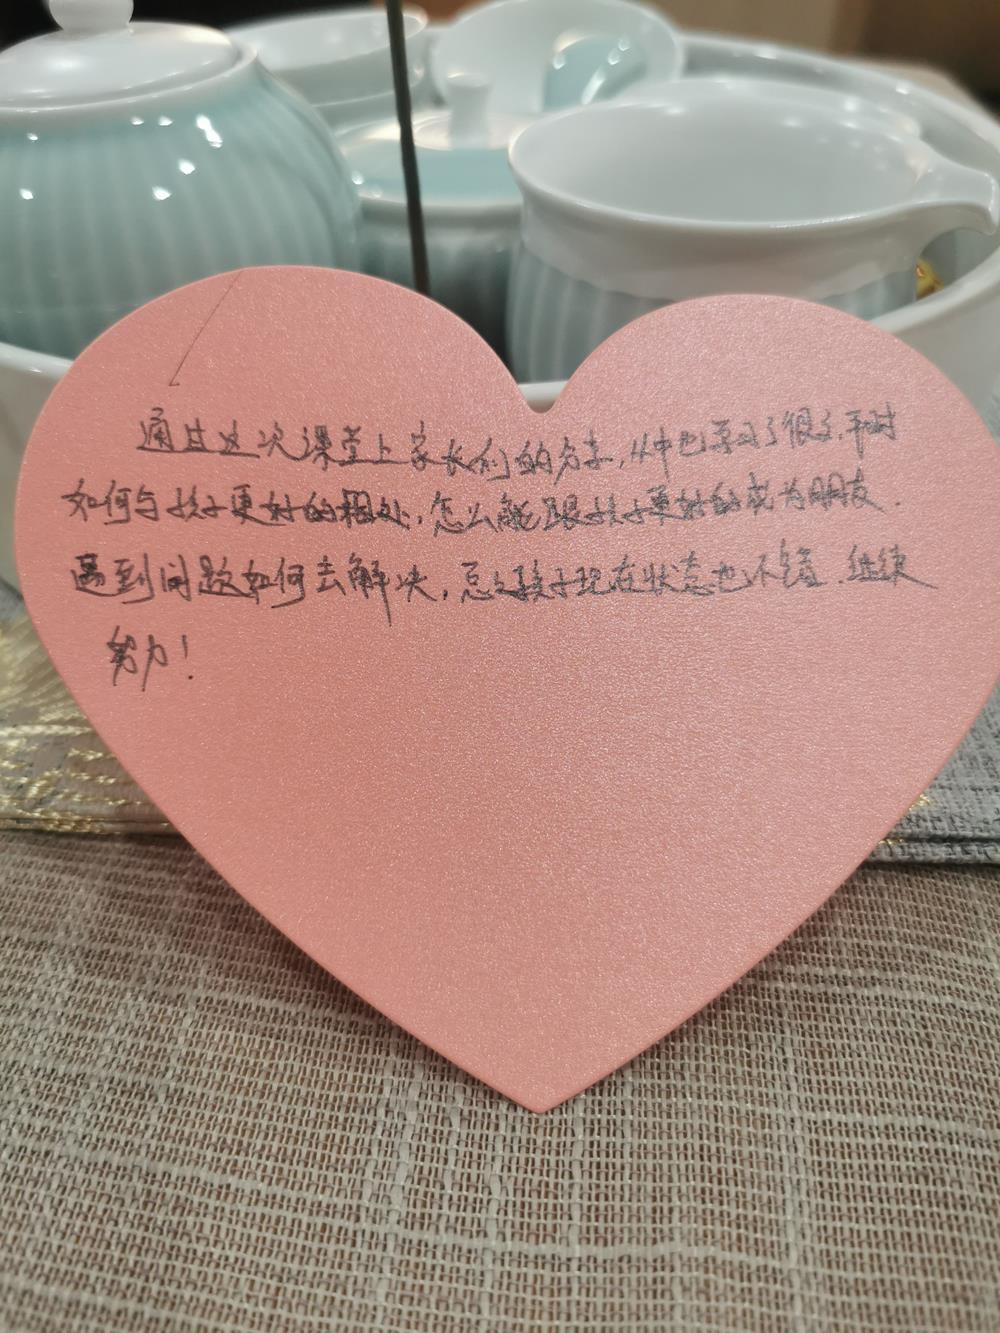 通过这次课堂上家长们的分享,从中也学习了很多,平时
如何与孩子更好的相处,怎么能跟孩子更好的成为朋友.
遇到问题如何去解决,总之孩子现在状态也不错.继续
努力!